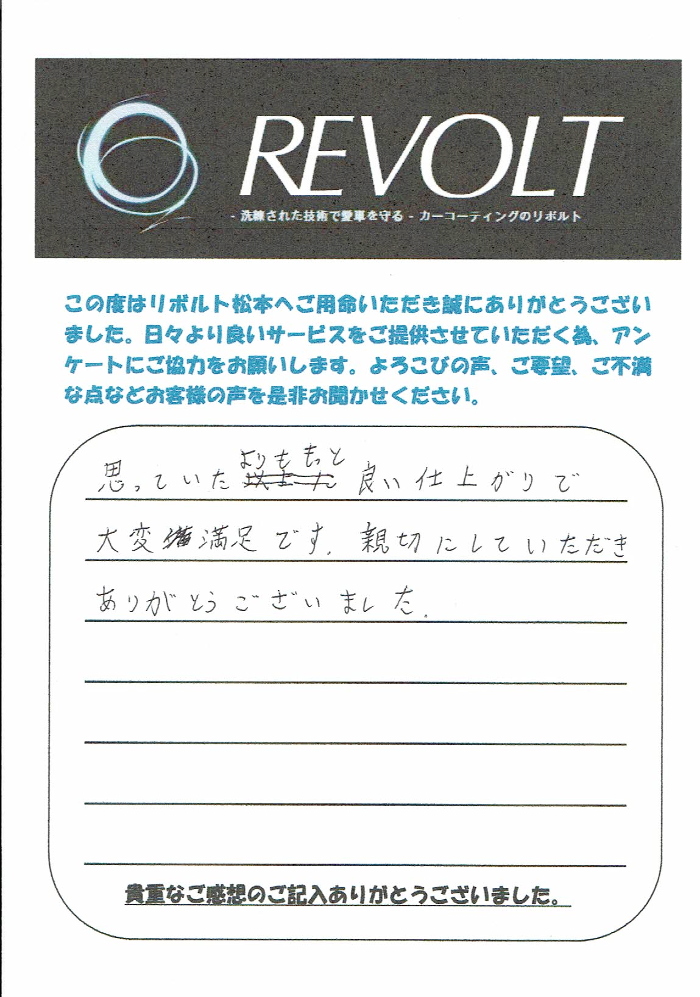 REVOLT
- 洗練された技術で愛車を守る - カーコーティングのリボルト
この度はリボルト松本へご用命いただき誠にありがとうござい
ました。日々より良いサービスをご提供させていただく為、アン
ケートにご協力をお願いします。よろこびの声、ご要望、ご不満
な点などお客様の声を是非お聞かせください。
よりももっと
思っていた 良い仕上がりで
大変満足です。親切にしていただき
ありがとうございました。
貴重なご感想のご記入ありがとうございました。